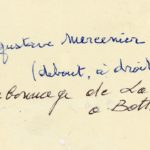 Gustave Mercenier
(debout, à droit
abonnage de La
a Bott